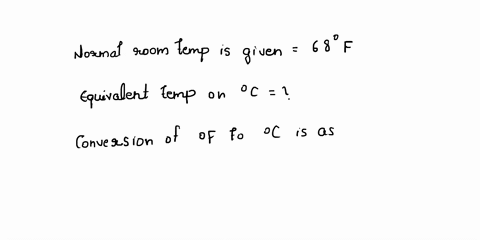 Normal room temp is given = 68°F
Equivalent temp on °C = ?
Conversion of °F to °C is as